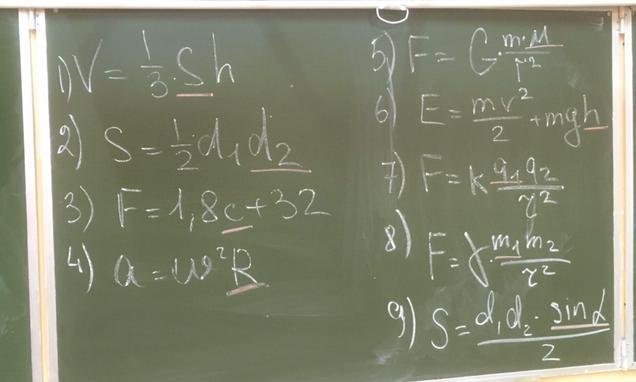 1) V = 1/3 · S h
2) S = 1/2 d₁ d₂
3) F = 1,8c + 32
4) a = ω²R
5) F = G · m·M / r²
6) E = mv² / 2 + mgh
7) F = k q₁ q₂ / r²
8) F = γ m₁ m₂ / r²
9) S = d₁ d₂ · sin α / 2